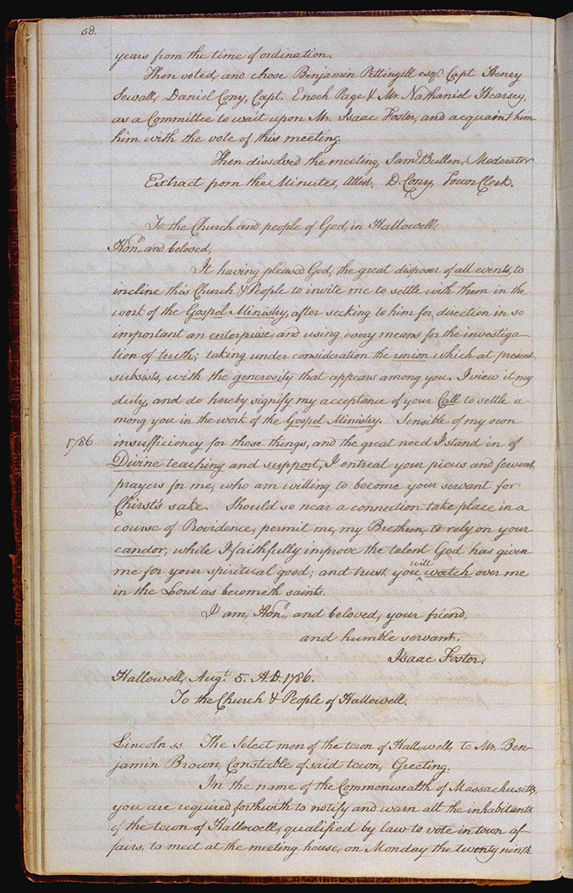 68.
years from the time of ordination.
Then voted, and chose Benjamin Pettingill esqr. Capt. Henry
Sewall, Daniel Cony, Capt. Enoch Page & Mr. Nathaniel Hearsey,
as a Committee to wait upon Mr. Isaac Foster, and acquaint him
him with the vote of this meeting.
Then dissolved the meeting, Saml. Bullen, Moderator
Extract from the Minutes, Attest, D. Cony, Town Clerk.
To the Church and people of God, in Hallowell,
Hond. and beloved,
It having pleased God, the great disposer of all events, to
incline this Church & People to invite me to settle with them in the
work of the Gospel Ministry, after seeking to him for direction in so
important an enterprise, and using every means for the investiga-
tion of truth; taking under consideration the union which at present
subsists, with the generosity that appears among you, I view it my
duty, and do hereby signify my acceptance of your Call to settle a
mong you in the work of the Gospel Ministry. Sensible of my own
1786 insufficiency for these things, and the great need I stand in of
Divine teaching and support, I entreat your pious and fervent,
prayers for me, who am willing to become your servant for
Chirst's sake. Should so near a connection take place in a
course of Providence, permit me, my Brethren, to rely on your
candor, while I faithfully improve the talent God has given
me for your spiritual good; and trust, you will watch over me
in the Lord as becometh saints.
I am, Hond., and beloved, your friend,
and humble servant,
Isaac Foster.
Hallowell, Augt. 5. AD. 1786.
To the Church & People of Hallowell.
Lincoln ss. The Select men of the town of Hallowell, to Mr. Ben-
jamin Brown, Constable of said town, Greeting.
In the name of the Commonwealth of Massachusetts,
you are required forthwith to notify and warn all the inhabitants
of the town of Hallowell, qualified by law to vote in town af
fairs, to meet at the meeting house, on Monday the twenty ninth